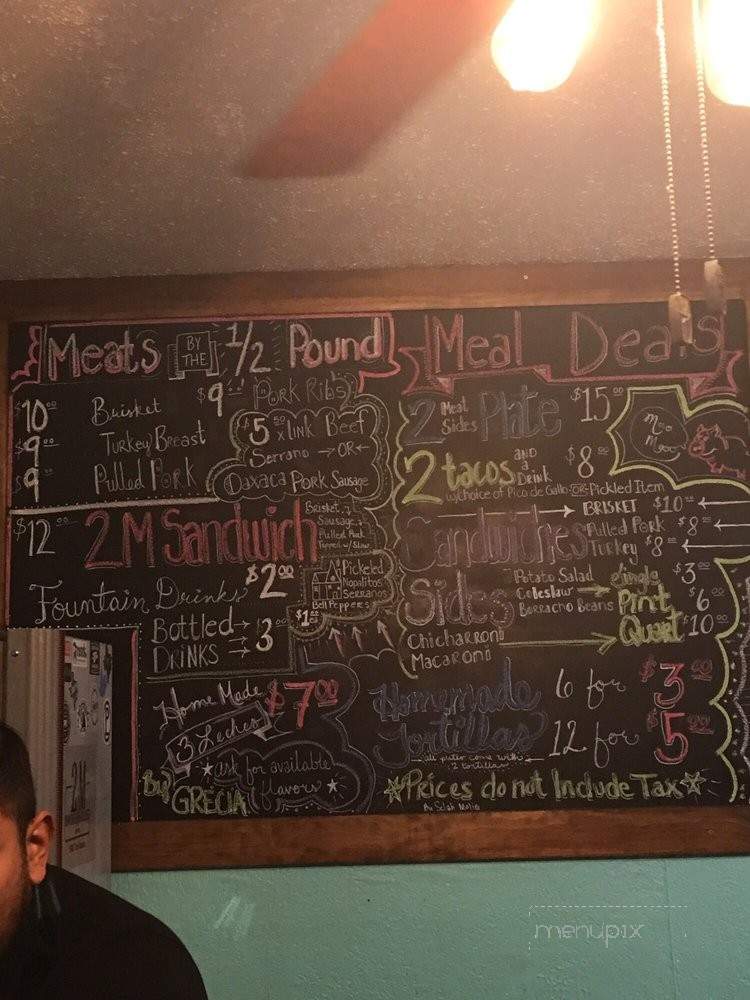 Meats BY THE 1/2 Pound
$10.00 Brisket
$9.00 Turkey Breast
$9.00 Pulled Pork
$9.00 Pork Ribs
$5.50 x Link Beef
Serrano → OR ←
Oaxaca Pork Sausage
$12.00 2M Sandwich
Brisket,
Sausage,
Pulled Pork
Topped w/Slaw
Fountain Drinks $2.00
Bottled → $3.00
DRINKS →
Pickled
Nopalitos
Serranos
Bell Peppers
$1.00
Home Made $7.00
3 Leches
★ ask for available
flavors ★
By GRECIA
Meal Deals
2 Meat Sides Plate $15.00
Moo Mooc
2 tacos AND a Drink $8.00
w/choice of Pico de Gallo -OR- Pickled Item
Sandwiches
→ BRISKET $10.00 ←
Pulled Pork $8.00 ←
Turkey $8.00 ←
Sides
Potato Salad
Coleslaw
Borracho Beans
Chicharroni
Macaroni
Single $3.00
Pint $6
Quart $10.00
Homemade Tortillas
6 for $3.00
12 for $5.00
all plates come with
2 tortillas
☆Prices do not Include Tax☆
2M
menupix